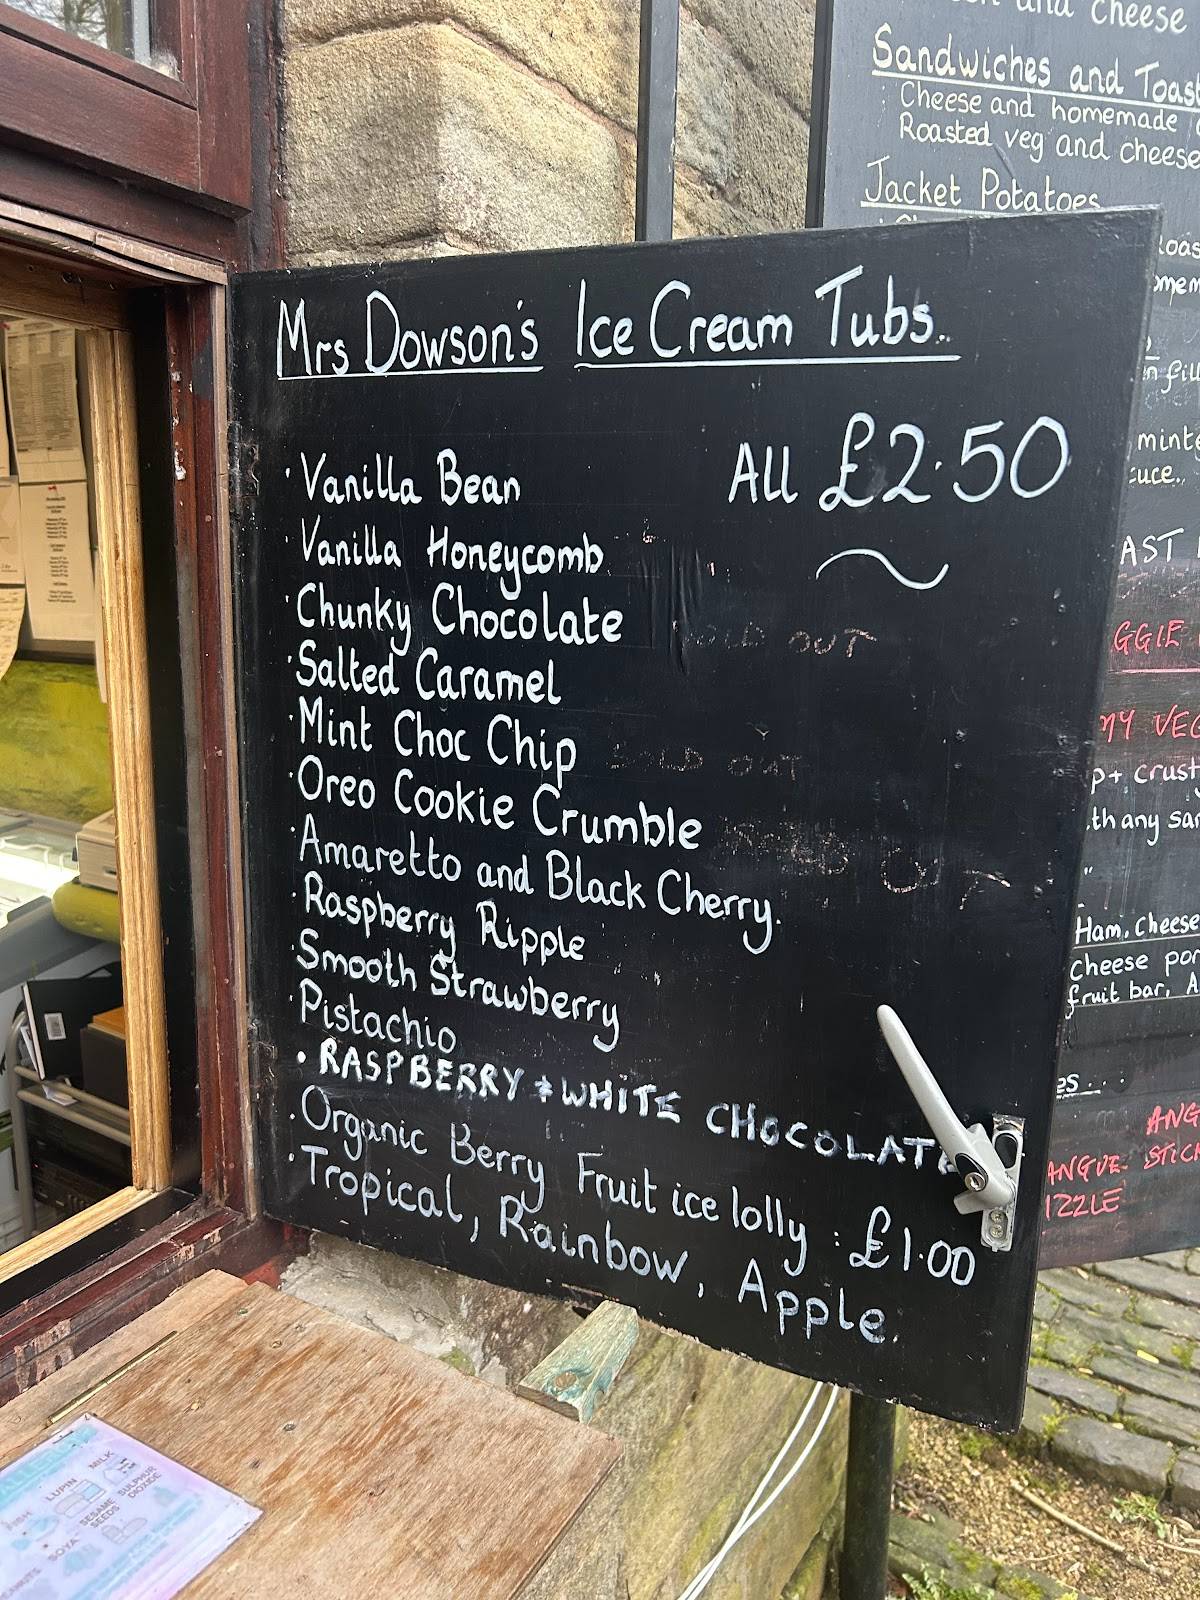 Mrs Dowson's Ice Cream Tubs..
All £2.50
· Vanilla Bean
· Vanilla Honeycomb
· Chunky Chocolate SOLD OUT
· Salted Caramel
· Mint Choc Chip SOLD OUT
· Oreo Cookie Crumble
· Amaretto and Black Cherry.
· Raspberry Ripple
· Smooth Strawberry
· Pistachio
· RASPBERRY + WHITE CHOCOLATE
· Organic Berry Fruit ice lolly : £1.00
· Tropical, Rainbow, Apple.
and cheese
Sandwiches and Toast
Cheese and homemade
Roasted veg and cheese
Jacket Potatoes
AST
GGIE
MY VEG
crust
with any
Ham, Cheese
Cheese
fruit bar, A
ANG
STICK
LUPIN
MILK
SOYA
SESAME SEEDS
SULPHUR DIOXIDE